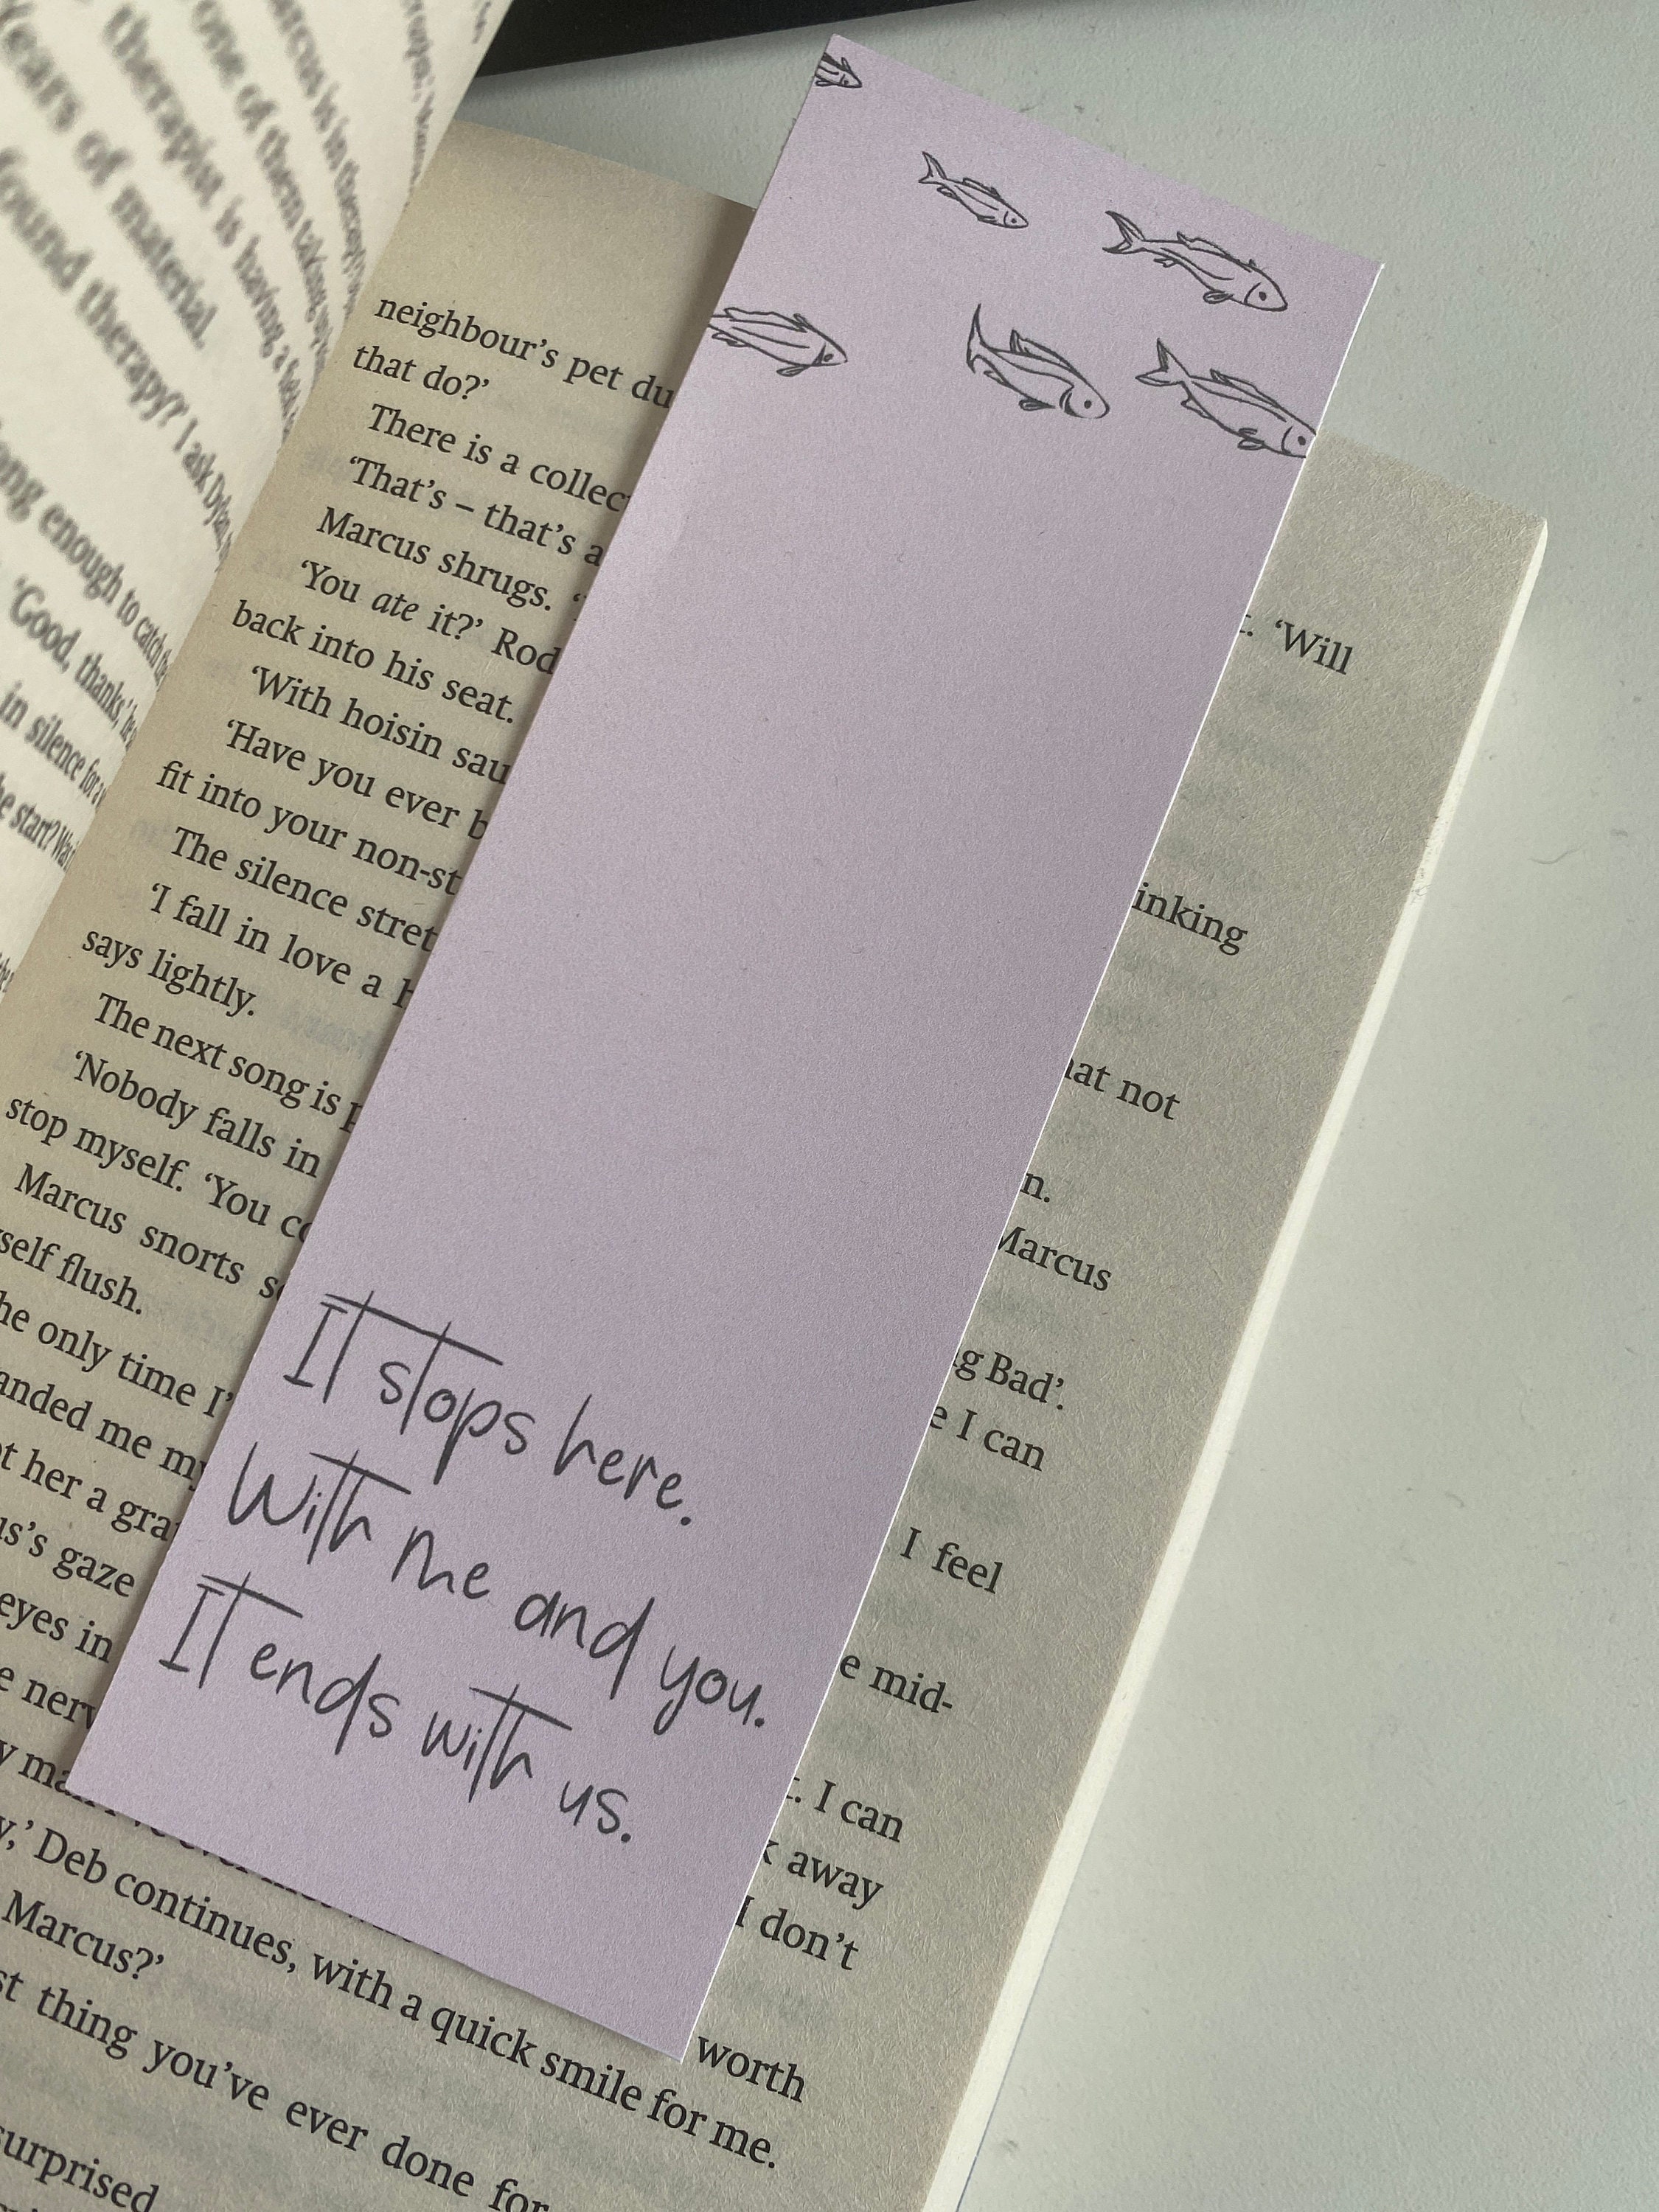 years of material.
found therapy?' I ask Dylan
long enough to catch the
'Good, thanks,' he
in silence for a
the start? Was
therapist is having a field
one of them taking up
Marcus is in therapy?
neighbour's pet du
that do?'
There is a collec
'That's – that's a
Marcus shrugs. '
'You ate it?' Rod
back into his seat.
'With hoisin sau
'Have you ever b
fit into your non-st
The silence stret
'I fall in love a H
says lightly.
The next song is p
'Nobody falls in
stop myself. 'You co
Marcus snorts so
self flush.
he only time I'
anded me my
t her a gra
us's gaze
eyes in
e nerv
y ma
y,' Deb continues, with a quick smile for me.
Marcus?'
st thing you've ever done for
surprised
. 'Will
inking
hat not
n.
Marcus
g Bad'.
e I can
I feel
e mid-
t. I can
k away
I don't
worth
It stops here.
With me and you.
It ends with us.